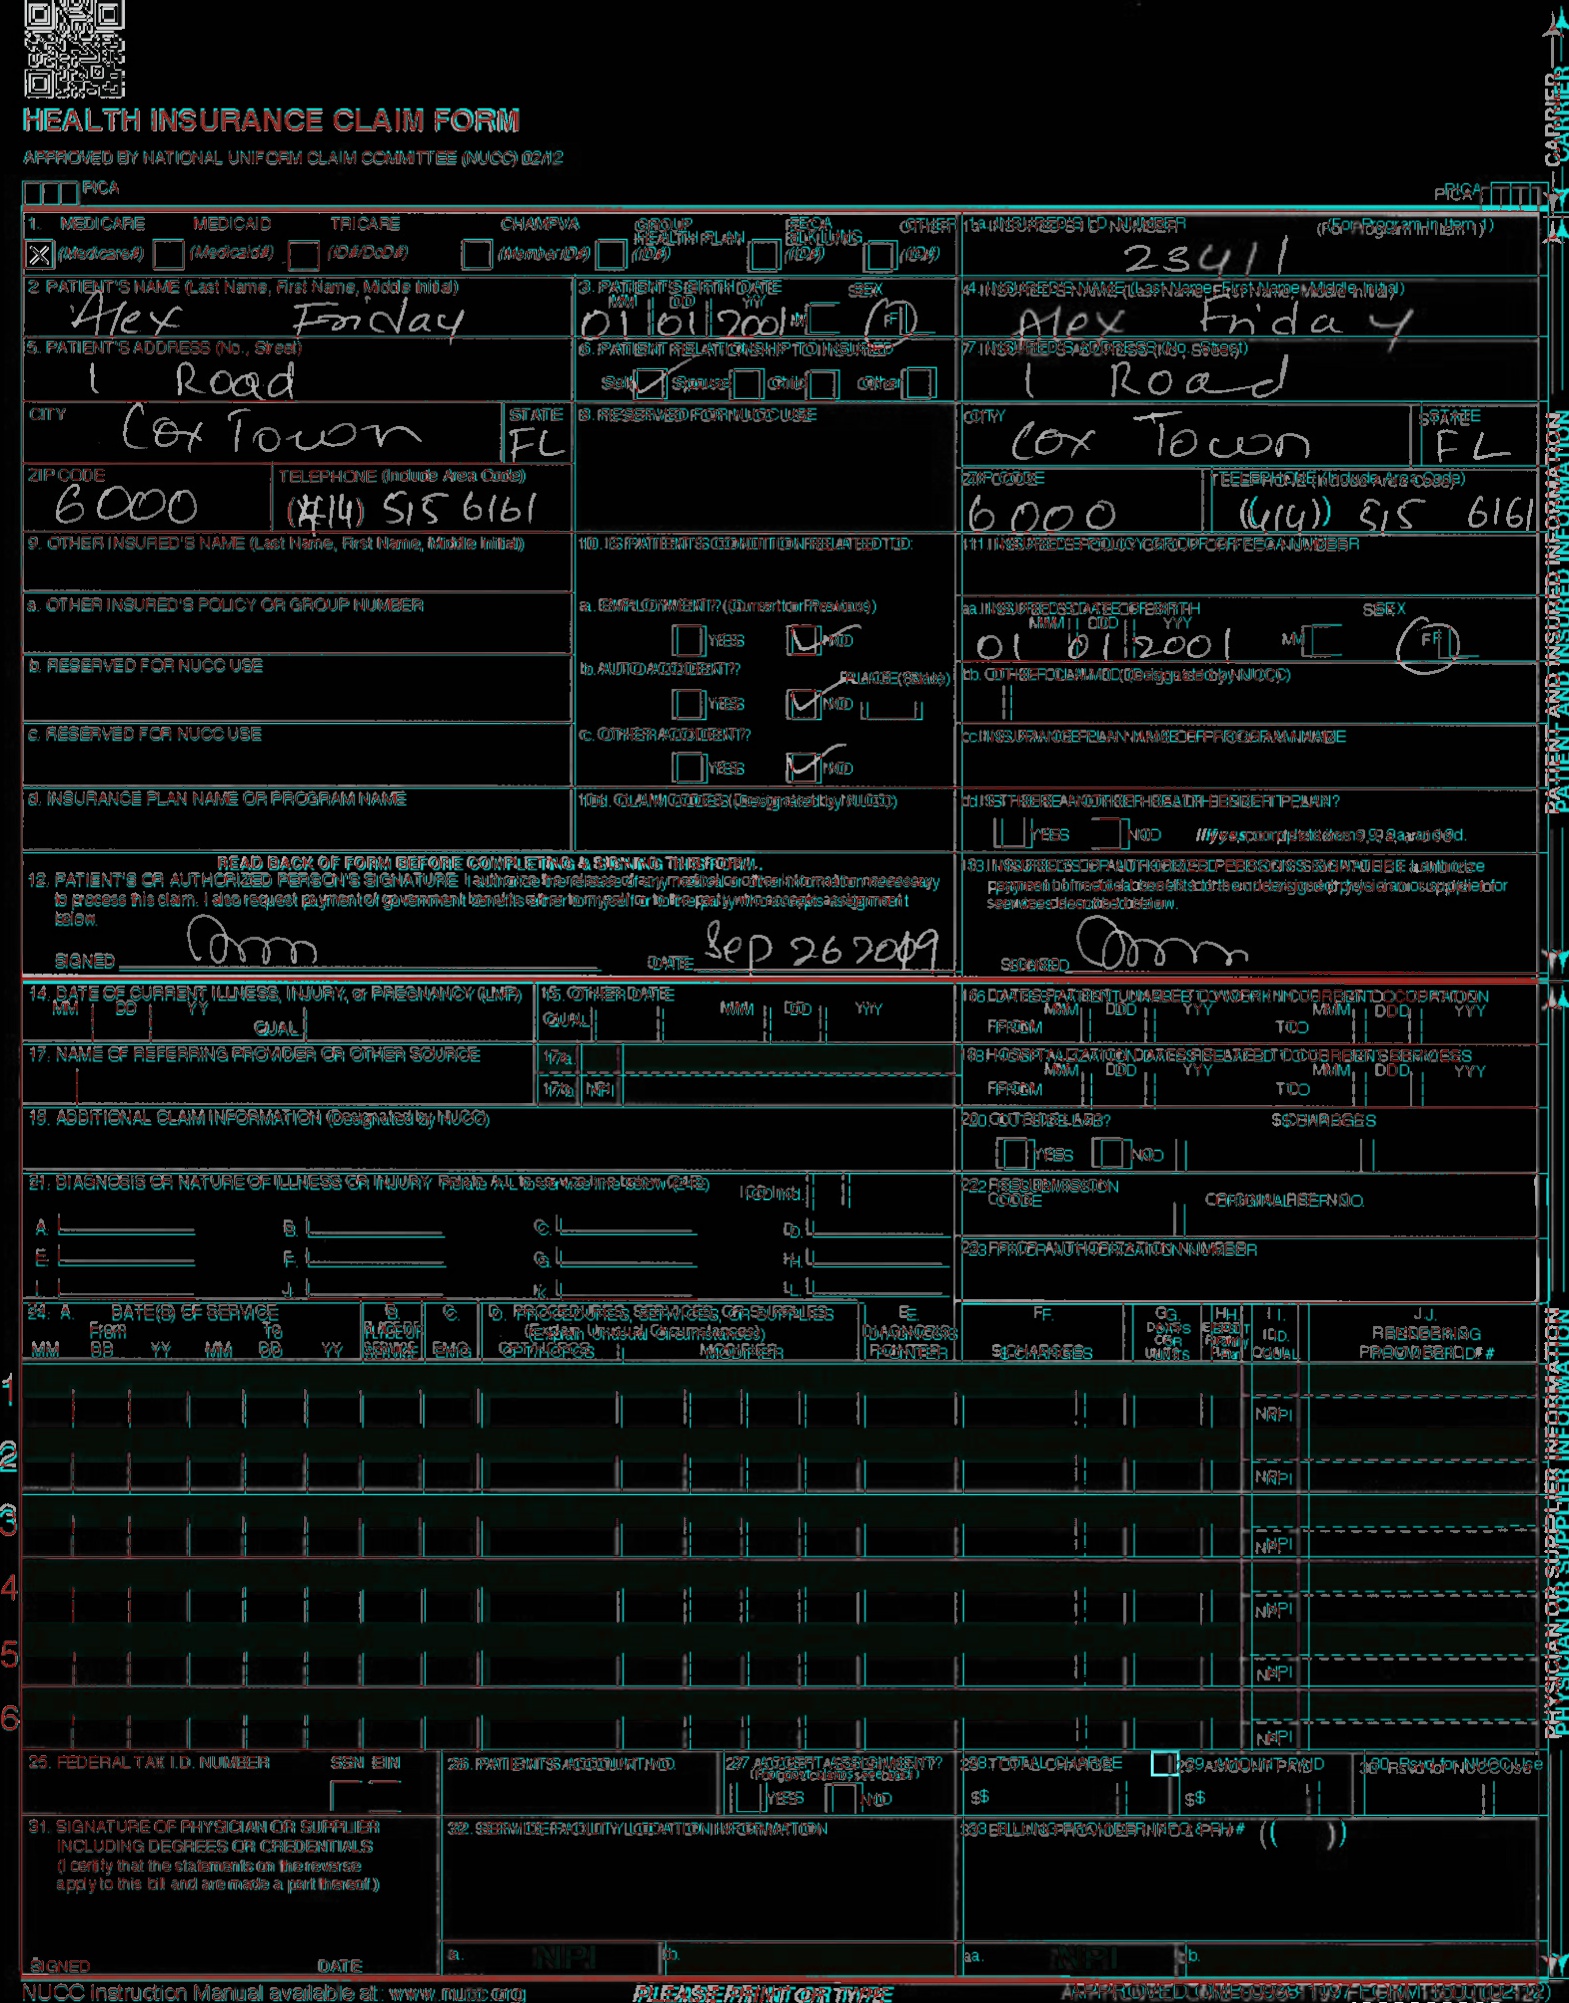 HEALTH INSURANCE CLAIM FORM
APPROVED BY NATIONAL UNIFORM CLAIM COMMITTEE (NUCC) 02/12
PICA PICA
CARRIER
1. MEDICARE MEDICAID TRICARE CHAMPVA GROUP HEALTH PLAN FECA BLK LUNG OTHER
(Medicare#) (Medicaid#) (ID#/DoD#) (Member ID#) (ID#) (ID#) (ID#)
1a. INSURED'S I.D. NUMBER (For Program in Item 1)
23411
2. PATIENT'S NAME (Last Name, First Name, Middle Initial)
Alex Friday
3. PATIENT'S BIRTH DATE SEX
MM DD YY
01 01 2001 M F
4. INSURED'S NAME (Last Name, First Name, Middle Initial)
Alex Friday
5. PATIENT'S ADDRESS (No., Street)
1 Road
6. PATIENT RELATIONSHIP TO INSURED
Self Spouse Child Other
7. INSURED'S ADDRESS (No., Street)
1 Road
CITY STATE
Cox Town FL
8. RESERVED FOR NUCC USE
CITY STATE
Cox Town FL
ZIP CODE TELEPHONE (Include Area Code)
6000 (414) 515 6161
ZIP CODE TELEPHONE (Include Area Code)
6000 (414) 515 6161
9. OTHER INSURED'S NAME (Last Name, First Name, Middle Initial)
10. IS PATIENT'S CONDITION RELATED TO:
11. INSURED'S POLICY GROUP OR FECA NUMBER
a. OTHER INSURED'S POLICY OR GROUP NUMBER
a. EMPLOYMENT? (Current or Previous)
YES NO
a. INSURED'S DATE OF BIRTH SEX
MM DD YY
01 01 2001 M F
b. RESERVED FOR NUCC USE
b. AUTO ACCIDENT? PLACE (State)
YES NO
b. OTHER CLAIM ID (Designated by NUCC)
c. RESERVED FOR NUCC USE
c. OTHER ACCIDENT?
YES NO
c. INSURANCE PLAN NAME OR PROGRAM NAME
d. INSURANCE PLAN NAME OR PROGRAM NAME
10d. CLAIM CODES (Designated by NUCC)
d. IS THERE ANOTHER HEALTH BENEFIT PLAN?
YES NO If yes, complete items 9, 9a, and 9d.
READ BACK OF FORM BEFORE COMPLETING & SIGNING THIS FORM.
12. PATIENT'S OR AUTHORIZED PERSON'S SIGNATURE I authorize the release of any medical or other information necessary
to process this claim. I also request payment of government benefits either to myself or to the party who accepts assignment
below.
SIGNED DATE Sep 26 2019
13. INSURED'S OR AUTHORIZED PERSON'S SIGNATURE I authorize
payment of medical benefits to the undersigned physician or supplier for
services described below.
SIGNED
PATIENT AND INSURED INFORMATION
14. DATE OF CURRENT ILLNESS, INJURY, or PREGNANCY (LMP)
MM DD YY QUAL.
15. OTHER DATE
QUAL. MM DD YY
16. DATES PATIENT UNABLE TO WORK IN CURRENT OCCUPATION
MM DD YY MM DD YY
FROM TO
17. NAME OF REFERRING PROVIDER OR OTHER SOURCE
17a.
17b. NPI
18. HOSPITALIZATION DATES RELATED TO CURRENT SERVICES
MM DD YY MM DD YY
FROM TO
19. ADDITIONAL CLAIM INFORMATION (Designated by NUCC)
20. OUTSIDE LAB? $ CHARGES
YES NO
21. DIAGNOSIS OR NATURE OF ILLNESS OR INJURY Relate A-L to service line below (24E) ICD Ind.
A. B. C. D.
E. F. G. H.
I. J. K. L.
22. RESUBMISSION CODE ORIGINAL REF. NO.
23. PRIOR AUTHORIZATION NUMBER
24. A. DATE(S) OF SERVICE
From To
MM DD YY MM DD YY
B. PLACE OF SERVICE
C. EMG
D. PROCEDURES, SERVICES, OR SUPPLIES
(Explain Unusual Circumstances)
CPT/HCPCS MODIFIER
E. DIAGNOSIS POINTER
F. $ CHARGES
G. DAYS OR UNITS
H. EPSDT Family Plan
I. ID. QUAL.
J. RENDERING PROVIDER ID. #
1 NPI
2 NPI
3 NPI
4 NPI
5 NPI
6 NPI
PHYSICIAN OR SUPPLIER INFORMATION
25. FEDERAL TAX I.D. NUMBER SSN EIN
26. PATIENT'S ACCOUNT NO.
27. ACCEPT ASSIGNMENT?
(For govt. claims, see back)
YES NO
28. TOTAL CHARGE
$
29. AMOUNT PAID
$
30. Rsvd for NUCC Use
31. SIGNATURE OF PHYSICIAN OR SUPPLIER
INCLUDING DEGREES OR CREDENTIALS
(I certify that the statements on the reverse
apply to this bill and are made a part thereof.)
SIGNED DATE
32. SERVICE FACILITY LOCATION INFORMATION
a. NPI b.
33. BILLING PROVIDER INFO & PH # ( )
a. NPI b.
NUCC Instruction Manual available at: www.nucc.org
PLEASE PRINT OR TYPE